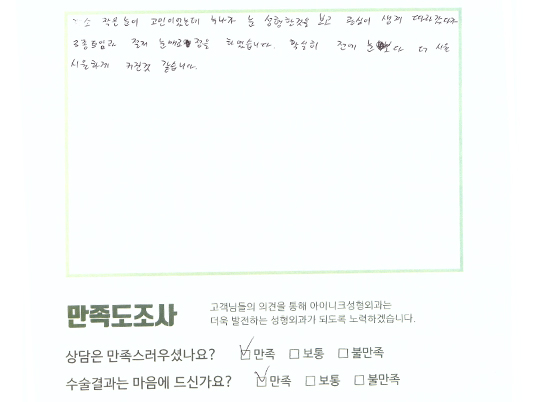 소 작은눈이 고민이었는데 누나가 눈 성형한것을 보고 관심이 생겨 따라갔다가
절개 눈매교정을 하였습니다. 확실히 전에 눈보다 더 시원
시원하게 커진것 같습니다.
만족도조사
고객님들의 의견을 통해 아이니크성형외과는
더욱 발전하는 성형외과가 되도록 노력하겠습니다.
상담은 만족스러우셨나요? ☑만족 □보통 □불만족
수술결과는 마음에 드신가요? ☑만족 □보통 □불만족